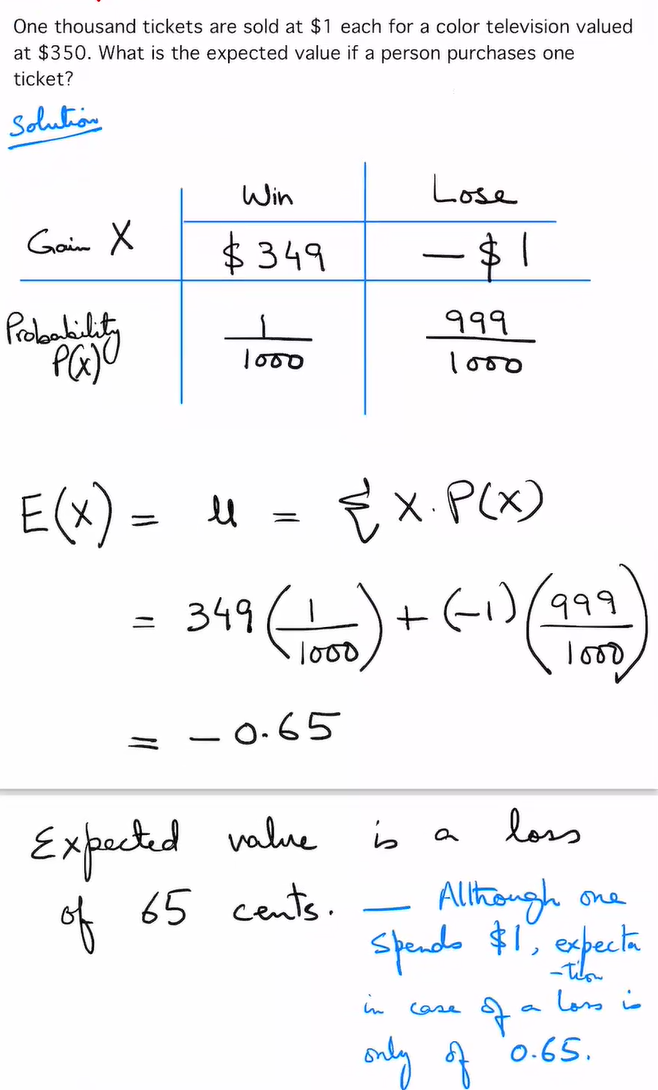 One thousand tickets are sold at $1 each for a color television valued
at $350. What is the expected value if a person purchases one
ticket?
Solution
Win Lose
Gain X $349 -$1
Probability P(X) 1/1000 999/1000
E(X) = μ = Σ X·P(X)
= 349(1/1000) + (-1)(999/1000)
= -0.65
Expected value is a loss
of 65 cents.
— Although one
spends $1, expecta
-tion
in case of a loss is
only of 0.65.